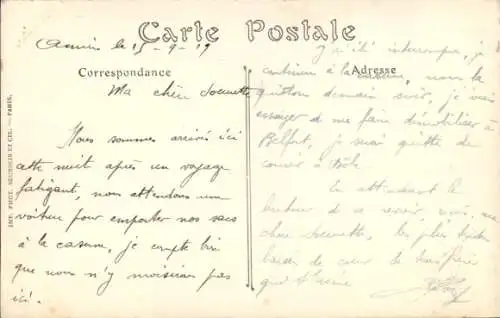 Carte Postale
Amiens le 15-9-19
Correspondance
Adresse
Ma chère Soeurette
Nous sommes arrivés ici
cette nuit après un voyage
fatigant, nous attendons une
voiture pour emporter nos sacs
à la caserne, je compte bien
que nous n'y moisirons pas
ici.
J'ai été interrompu, je
continue à la caserne, nous la
quittons demain soir, je vais
essayer de me faire démobiliser à
Belfort, je serai quitte de
courir à
En attendant le
bonheur de te revoir, reçois, ma
chère Soeurette, les plus tendres
baisers de coeur de ton frère
qui t'aime
IMP. PHOT. NEURDEIN ET CIE. — PARIS.